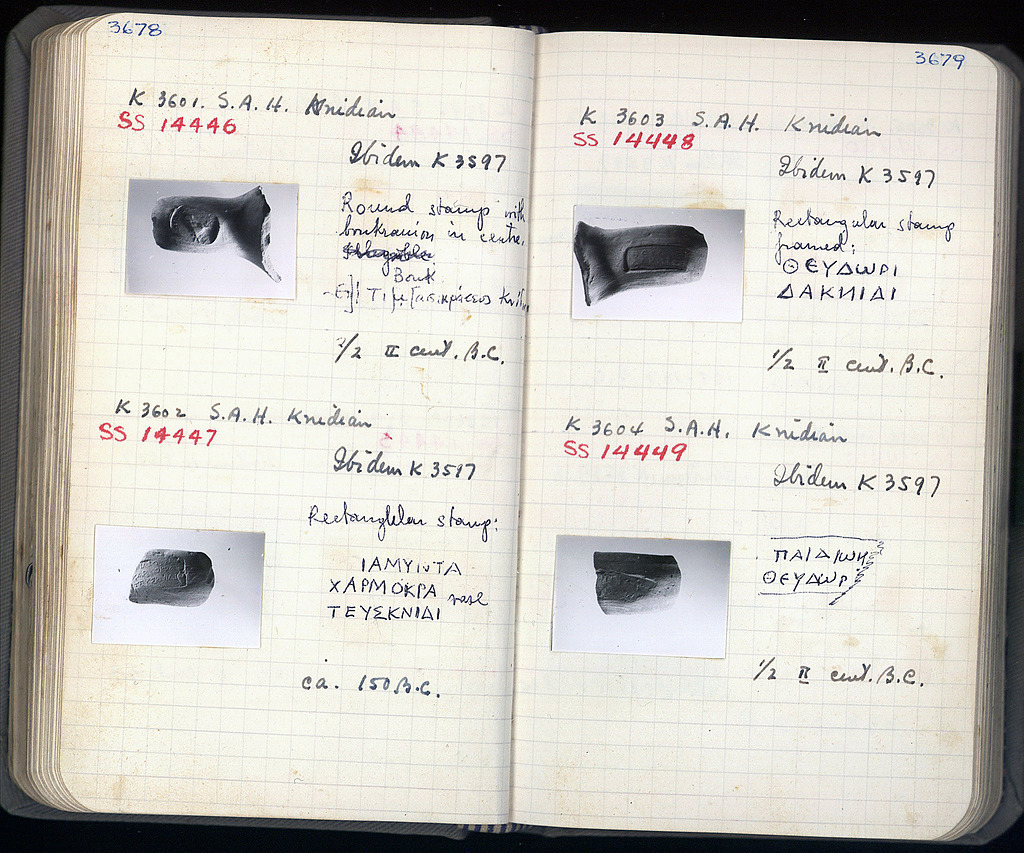 3678
K 3601. S.A.H. Knidian
SS 14446
Ibidem K 3597
Round stamp with
boukranion in centre.
Bouk
Τιμ[ασικράτευς
2/2 II cent. B.C.
K 3602 S.A.H. Knidian
SS 14447
Ibidem K 3597
Rectangular stamp:
ΙΑΜΥΝΤΑ
ΧΑΡΜΟΚΡΑ vase
ΤΕΥΣΚΝΙΔΙ
ca. 150 B.C.
3679
K 3603 S.A.H. Knidian
SS 14448
Ibidem K 3597
Rectangular stamp
framed:
ΘΕΥΔΩΡΙ
ΔΑΚΝΙΔΙ
1/2 II cent. B.C.
K 3604 S.A.H. Knidian
SS 14449
Ibidem K 3597
ΘΕΥΔΩΡ
1/2 II cent. B.C.